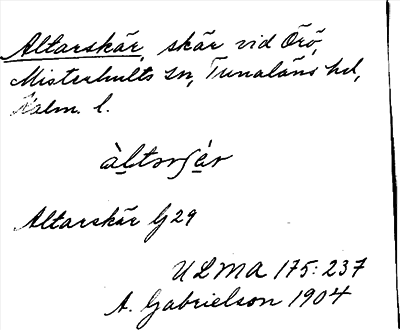 Altarskär, skär vid Örö,
Misterhults sn, Tunaläns hd,
Kalm. l.
àltorʃǽr
Altarskär G 29
ULMA 175:237
A. Gabrielson 1904